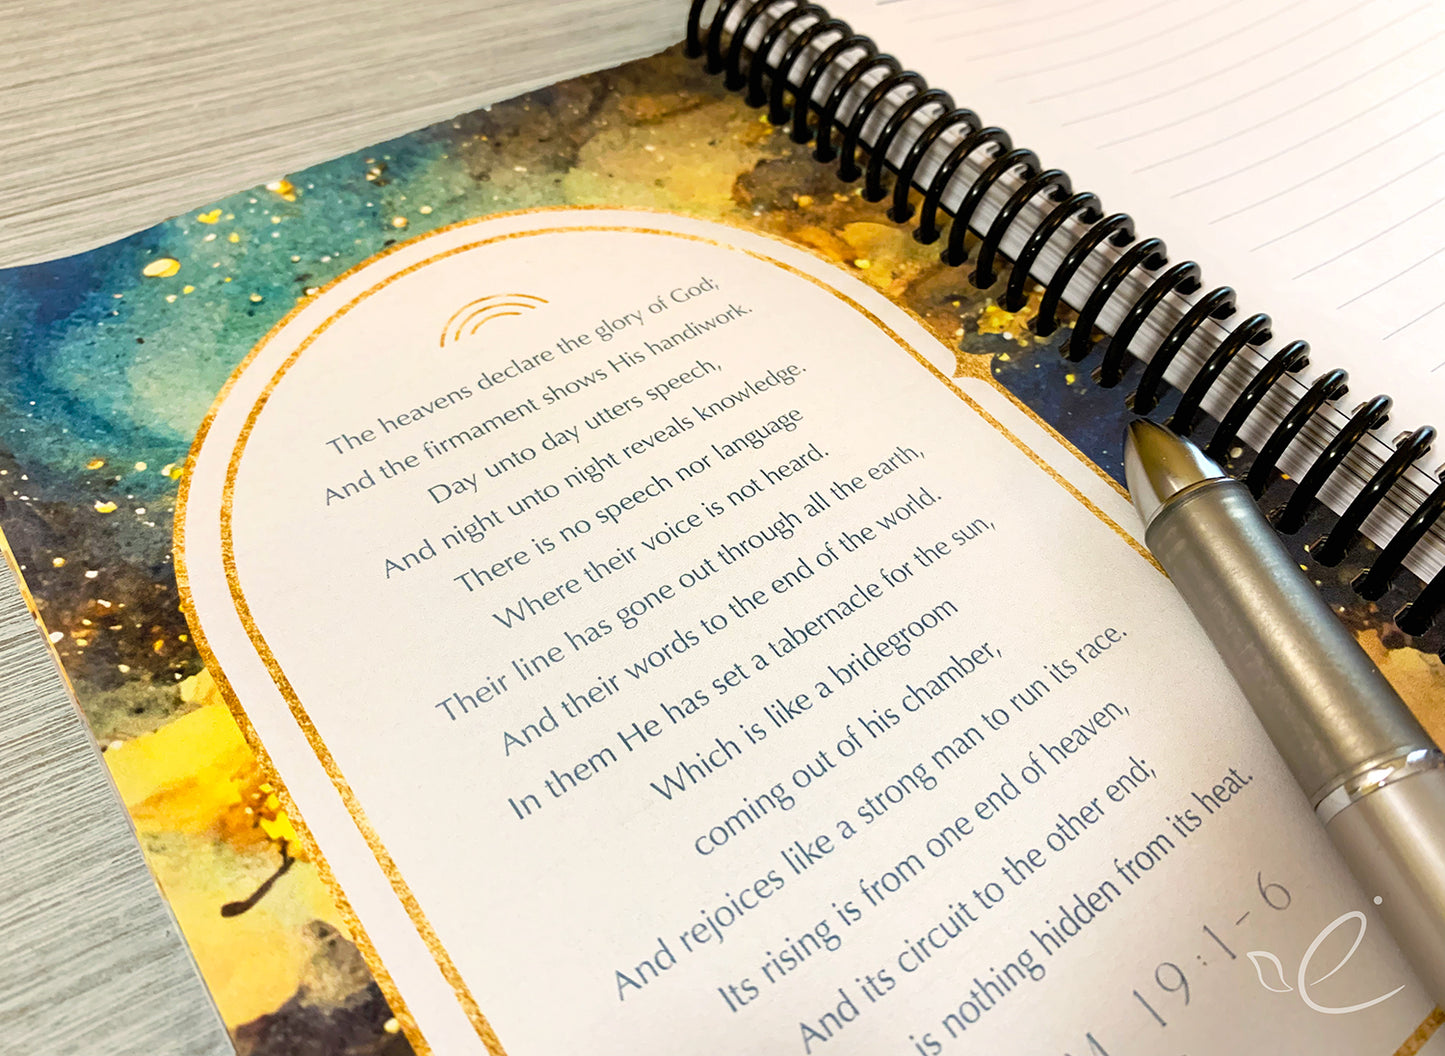 The heavens declare the glory of God;
And the firmament shows His handiwork.
Day unto day utters speech,
And night unto night reveals knowledge.
There is no speech nor language
Where their voice is not heard.
Their line has gone out through all the earth,
And their words to the end of the world.
In them He has set a tabernacle for the sun,
Which is like a bridegroom
coming out of his chamber,
And rejoices like a strong man to run its race.
Its rising is from one end of heaven,
And its circuit to the other end;
is nothing hidden from its heat.
19:1-6